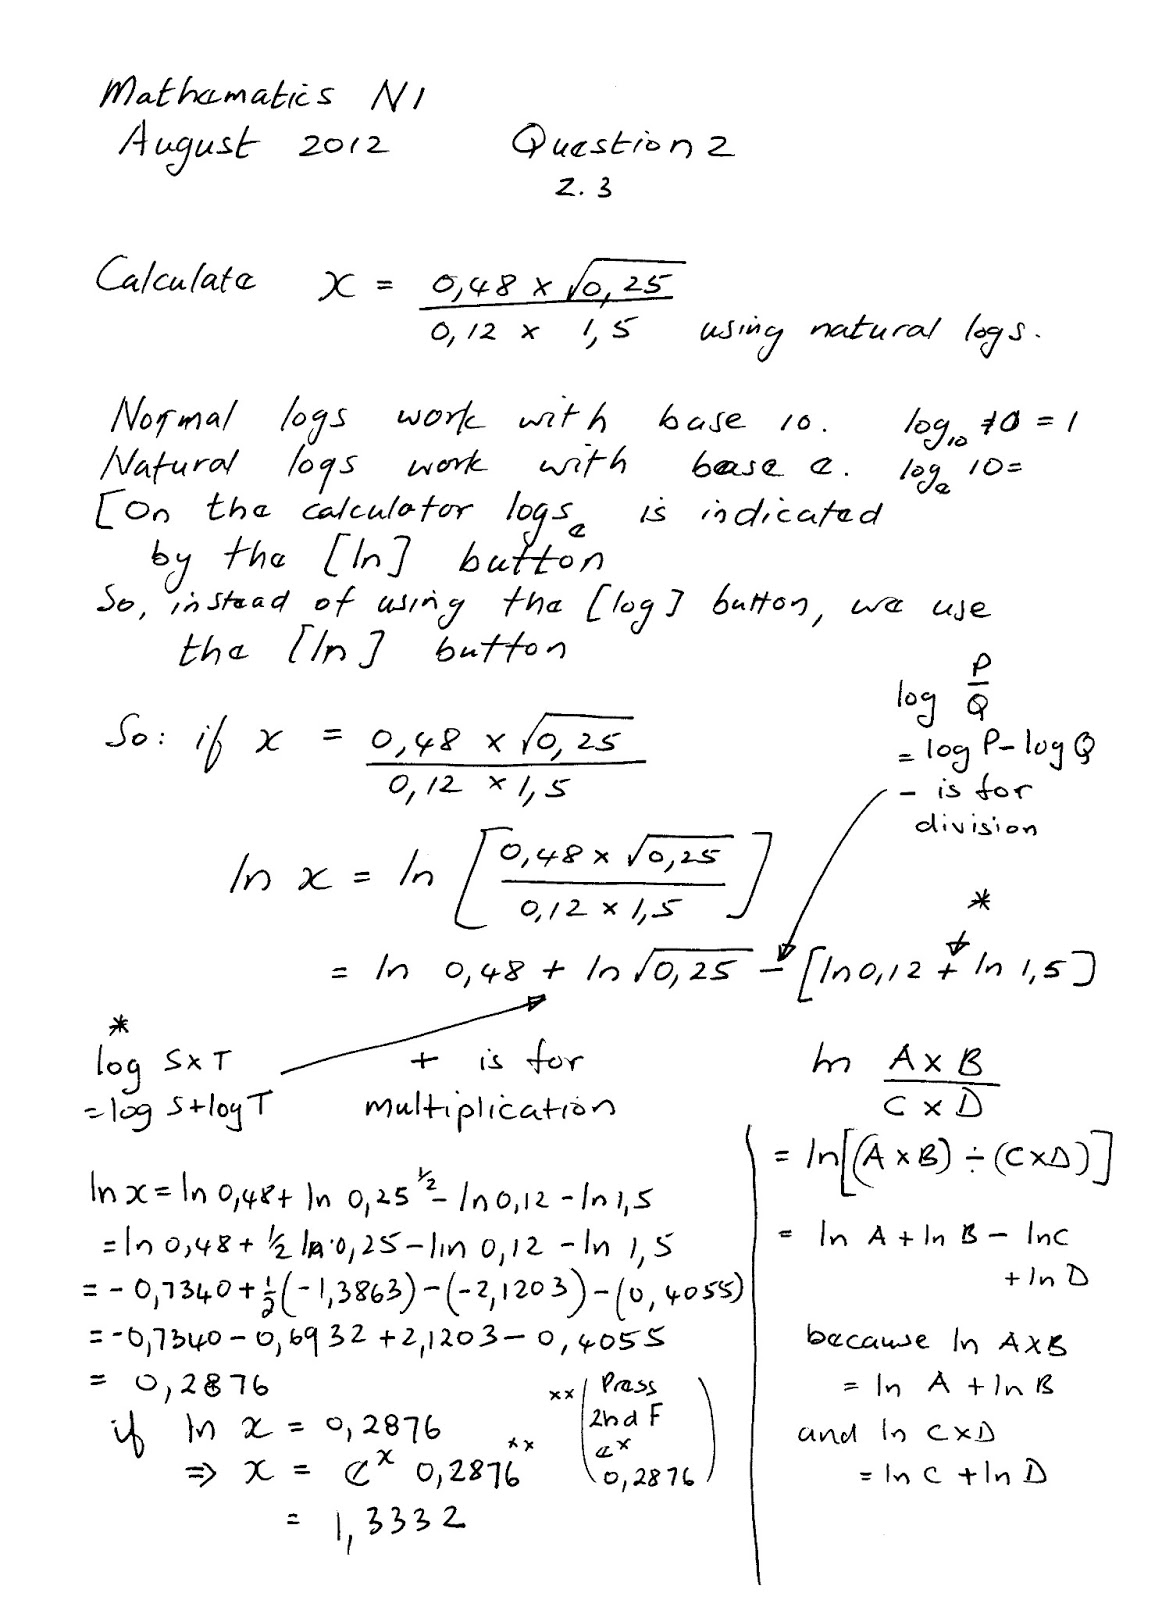 Mathematics N1
August 2012 Question 2
2.3
Calculate x = 0,48 × √0,25
0,12 × 1,5 using natural logs.
Normal logs work with base 10. log₁₀ 10 = 1
Natural logs work with base e. logₑ 10=
[On the calculator logsₑ is indicated
by the [ln] button
So, instead of using the [log] button, we use
the [ln] button
log P/Q
= log P - log Q
- is for
division
So: if x = 0,48 × √0,25
0,12 × 1,5
ln x = ln [0,48 × √0,25
0,12 × 1,5]
*
= ln 0,48 + ln √0,25 - [ln 0,12 + ln 1,5]
*
log S×T
= log S + log T
+ is for
multiplication
ln x = ln 0,48 + ln 0,25^½ - ln 0,12 - ln 1,5
= ln 0,48 + ½ ln 0,25 - ln 0,12 - ln 1,5
= - 0,7340 + ½(-1,3863) - (-2,1203) - (0,4055)
= -0,7340 - 0,6932 + 2,1203 - 0,4055
= 0,2876
if ln x = 0,2876
⇒ x = eˣ 0,2876 **
= 1,3332
** (Press
2nd F
eˣ
0,2876)
ln A × B
C × D
= ln[(A × B) ÷ (C×D)]
= ln A + ln B - ln C
+ ln D
because ln A×B
= ln A + ln B
and ln C×D
= ln C + ln D